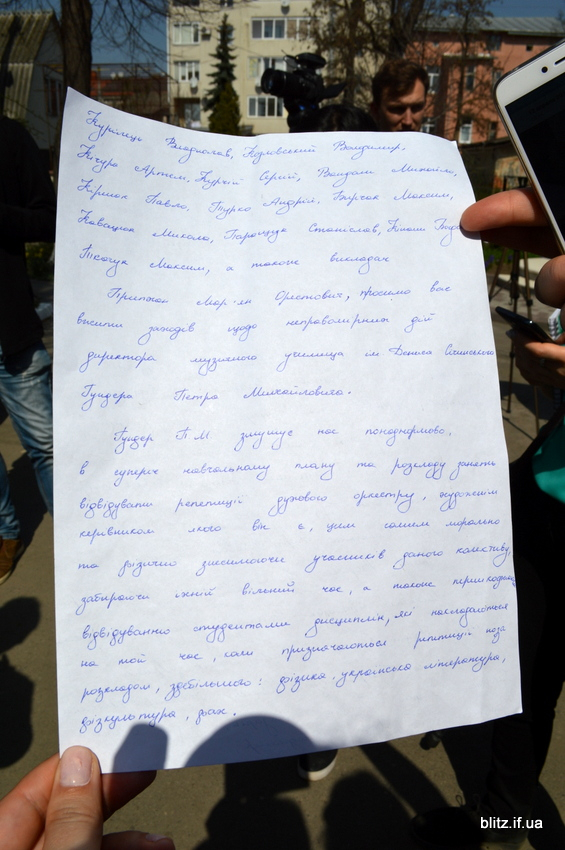 Курилець Владислав, Козловський Володимир,
Кічура Артем, Курчій Сергій, Вандоляк Михайло,
Кіршак Павло, Турко Андрій, Бирчак Максим,
Ковацюк Микола, Паращук Станіслав,
Ткачук Максим, а також викладач
Принжак Мар'ян Орестович, просимо вас
вжити заходів щодо неправомірних дій
директора музичного училища ім Дениса Січинського
Гундера Петра Михайловича.
Гундер П М змушує нас понаднормово,
в супереч навчальному плану та розкладу занять
відвідувати репетиції духового оркестру, художнім
керівником якого він є, цим самим морально
та фізично знесилюючи учасників даного колективу,
забираючи їхній вільний час, а також перешкоджає
відвідуванню студентами дисциплін, які накладаються
на той час, коли призначаються репетиції поза
розкладом, здебільшого: фізика, українська література,
фізкультура, фах.
blitz.if.ua